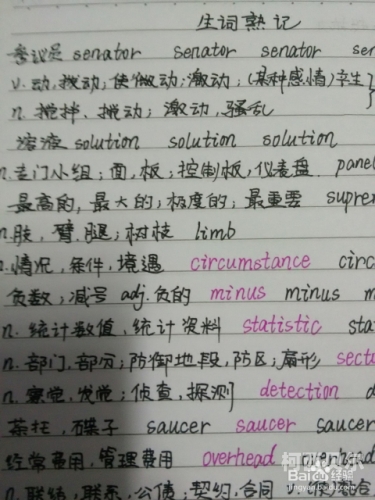 生词熟记
参议员 senator senator senator sen
v.动,拨动;使微动;激动;(某种感情)产生
n.搅拌、搅动;激动,骚乱
溶液 solution solution solution
n.专门小组;面,板;控制板,仪表盘 panel
最高的,最大的,极度的;最重要 suprem
n.肢,臂,腿;树枝 limb
n.情况,条件,境遇 circumstance circ
负数;减号 adj.负的 minus minus m
n.统计数值,统计资料 statistic sta
n.部门,部分;防御地段,防区;扇形 sect
n.察觉,发觉;侦查,探测 detection d
茶托,碟子 saucer saucer saucer
经常费用,管理费用 overhead overhead
n.联结,联系;公债;契约,合同